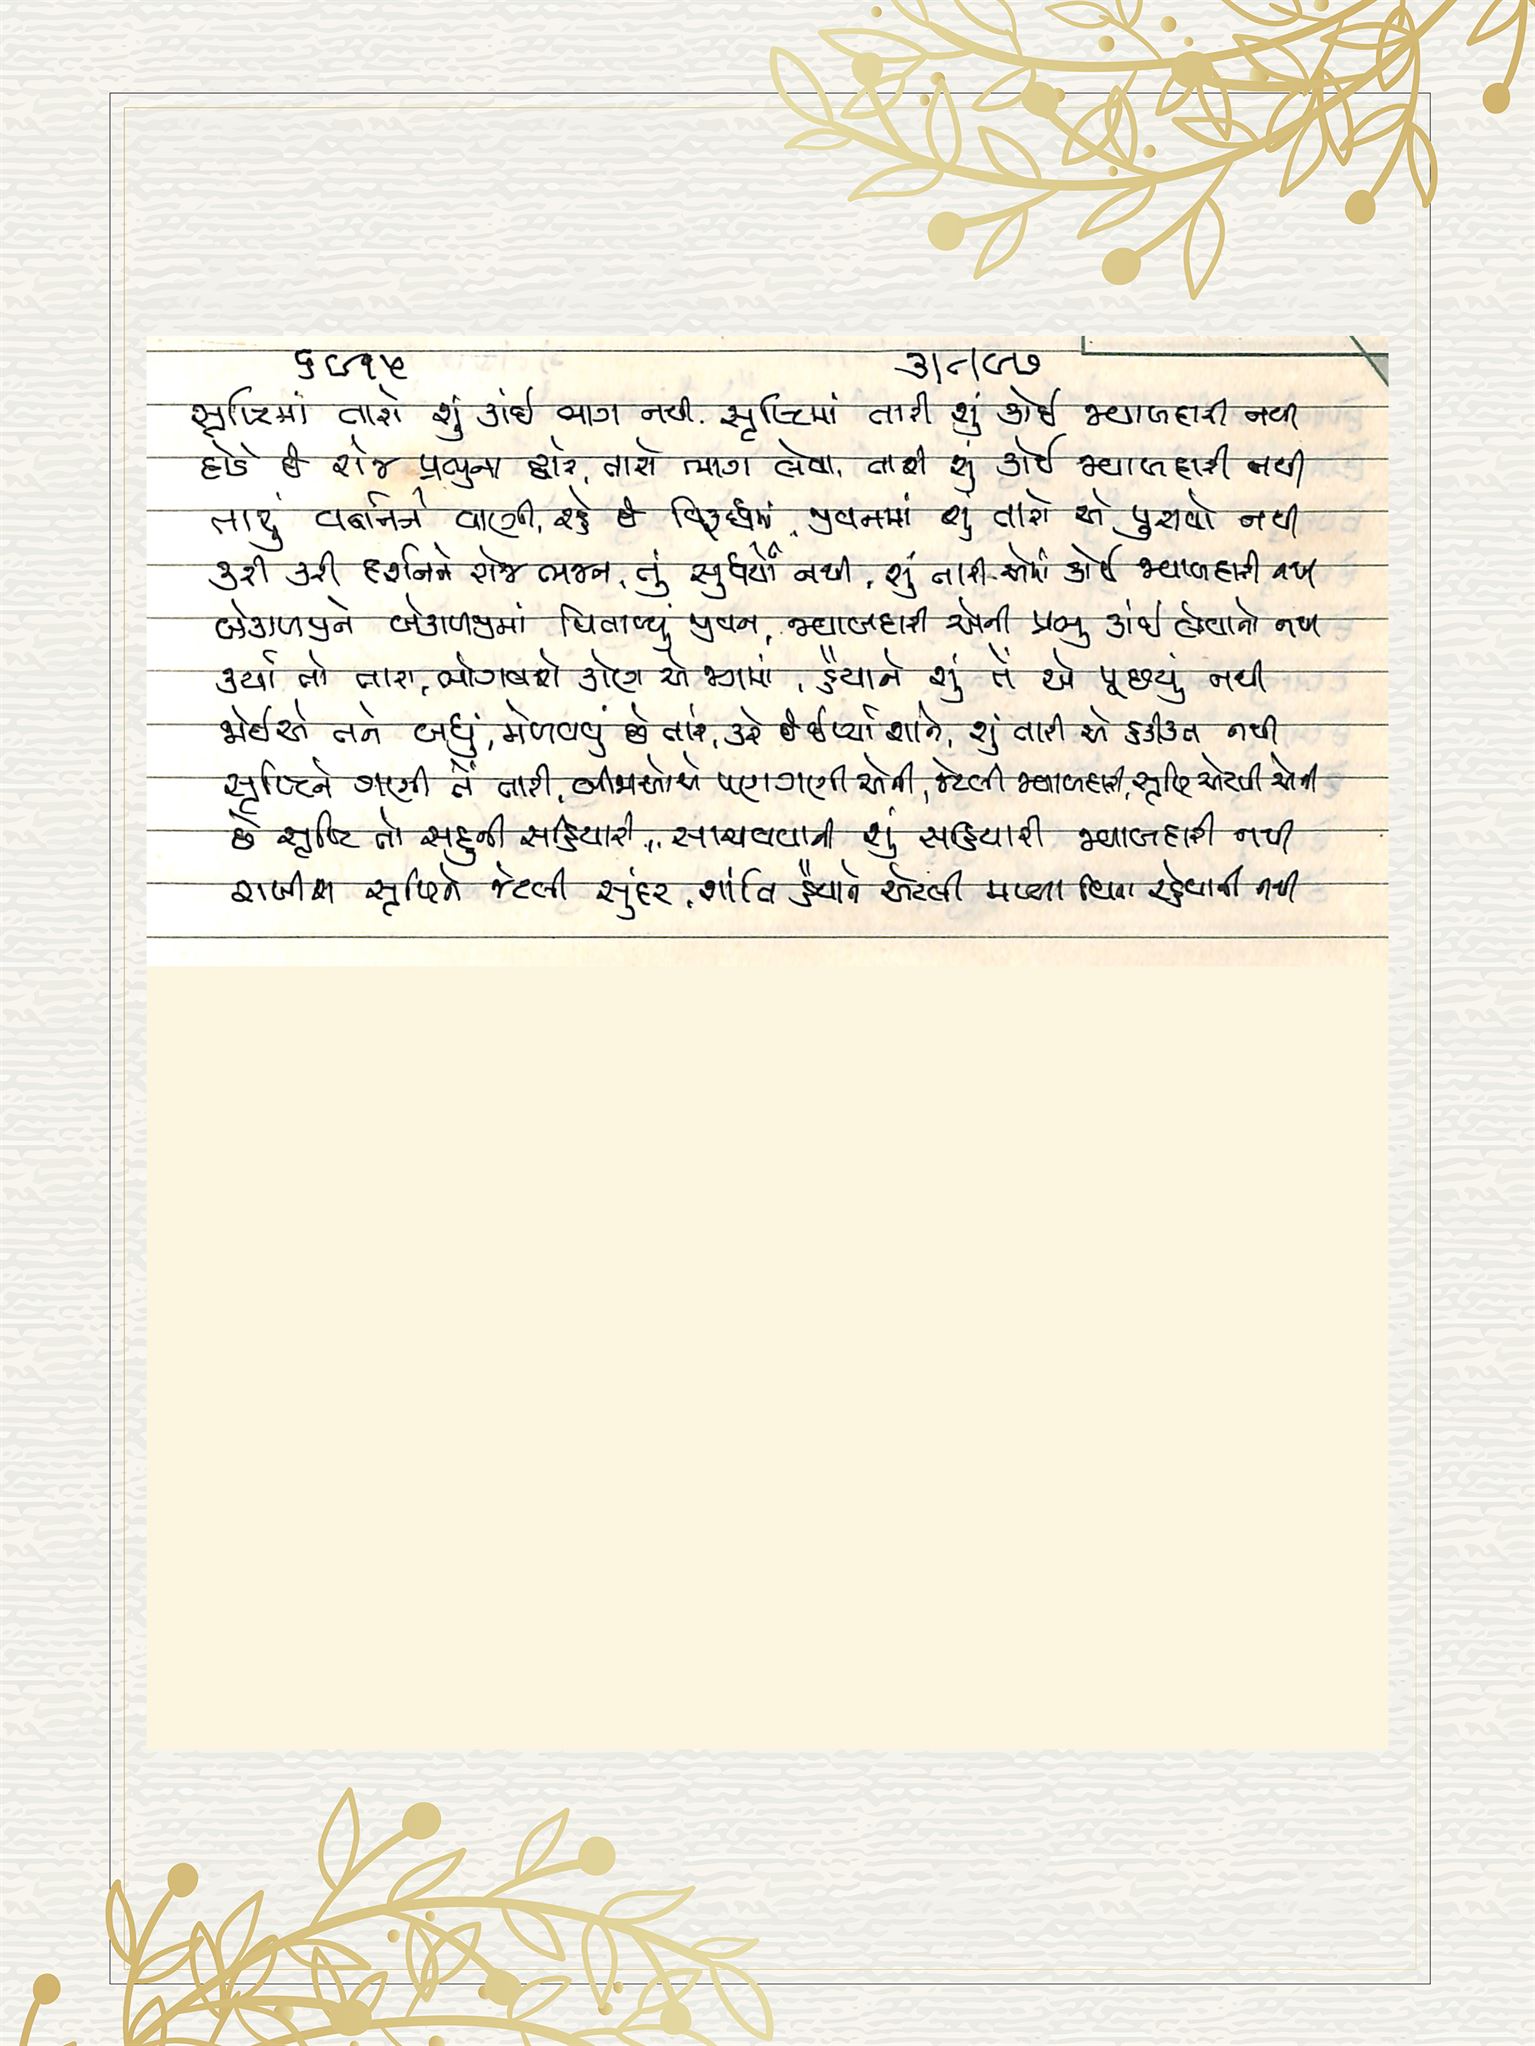 ૬૯૧૫ ૩|૮|૯૭
સૃષ્ટિમાં તારો શું કાંઈ ભાગ નથી. સૃષ્ટિમાં તારી શું કોઈ જવાબદારી નથી
દોડે છે રોજ પ્રભુના દ્વારે, તારો ભાગ લેવા, તારી શું કોઈ જવાબદારી નથી
તારું વર્તનને વાણી, રહે છે વિરૂદ્ધમાં, જીવનમાં શું તારો એ પુરાવો નથી
કરી કરી દર્શનને રોજ ભજન, તું સુધર્યો નથી, શું તારી એમાં કોઈ જવાબદારી નથી
બેકાળજીને બેકાળજીમાં વિતાવ્યું જીવન, જવાબદારી એની પ્રભુ કાંઈ લેવાનો નથી
કર્યા તો તારા, ભોગવશે કોણ એ જગમાં, હૈયાને શું તેં એ પૂછયું નથી
જોઈએ તને બધું, મેળવવું છે તારે, કરે છે ઈર્ષ્યા શાને, શું તારી એ હકીકત નથી
સૃષ્ટિને ગણી તેં તારી, બીજાઓએ પણ ગણી એની, જેટલી જવાબદારી, સૃષ્ટિ એટલી એની
છે સૃષ્ટિ તો સહુની સહિયારી, સાચવવાની શું સહિયારી જવાબદારી નથી
રાખીશ સૃષ્ટિને જેટલી સુંદર, શાંતિ હૈયાને એટલી મળ્યા વિના રહેવાની નથી